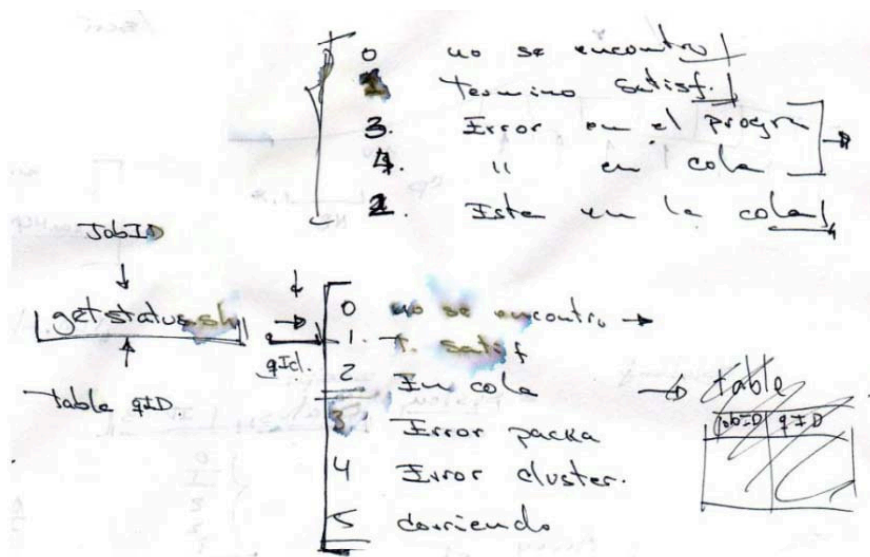 0 no se encontro
1 Termino satisf.
3. Error en el progra
4. " en cola
2. Esta en la cola
JobID
getstatus.sh
qId.
table qID.
0 no se encontro
1. T. satisf
2 En cola
3 Error packa
4 Error cluster.
5 corriendo
table
JobID qID